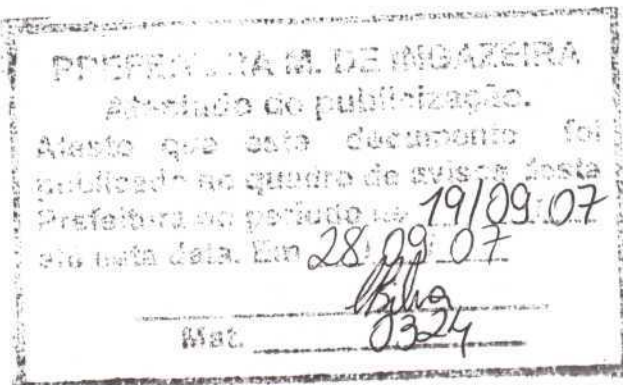 PREFEITURA M. DE INGAZEIRA
Atestado de publicização.
Atesto que este documento foi
publicado no quadro de avisos desta
Prefeitura no período de 19/09/07
até esta data. Em 28/09/07
Mat. 0324